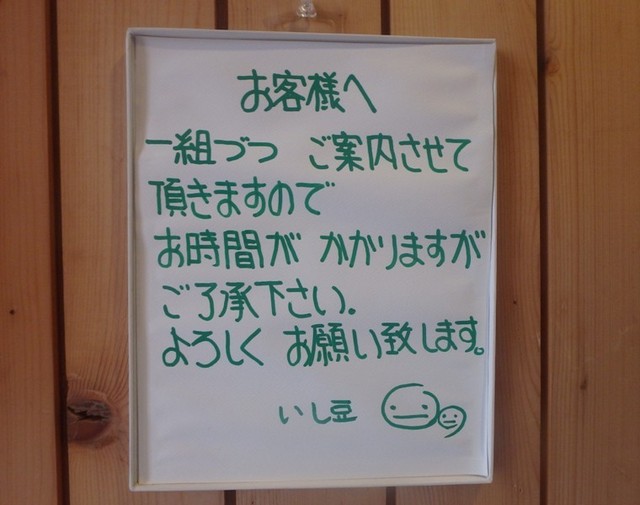 お客様へ
一組づつ ご案内させて
頂きますので
お時間が かかりますが
ご了承下さい。
よろしく お願い致します。
いし豆